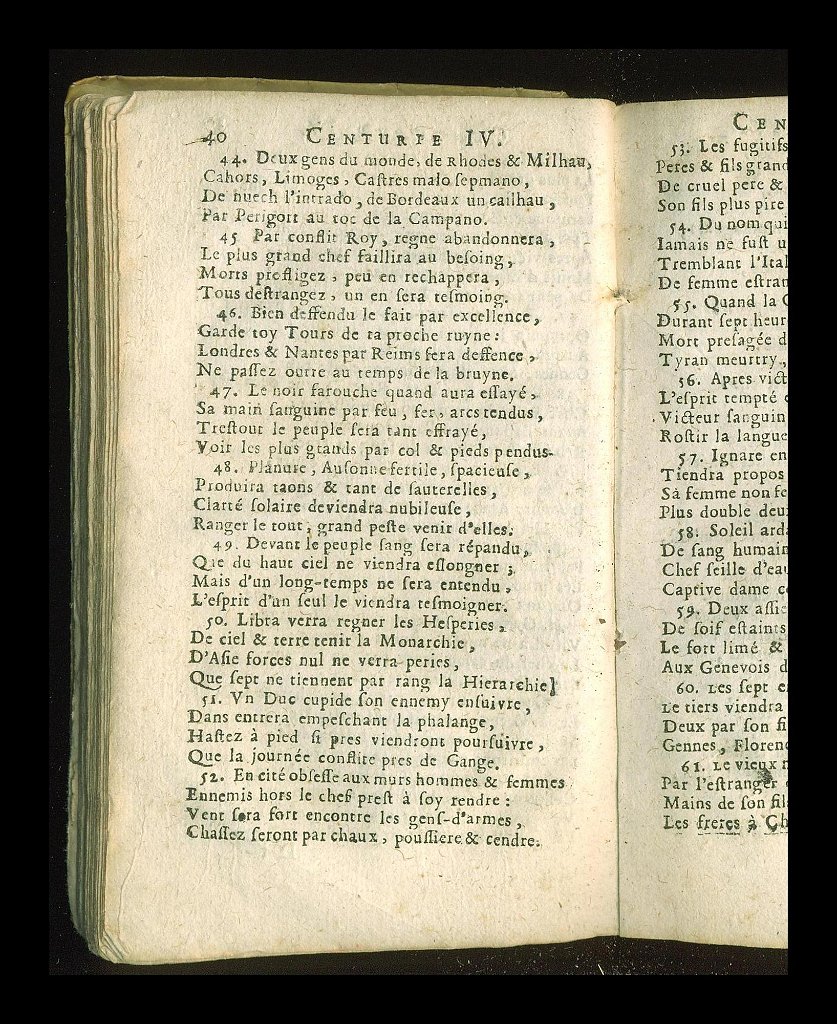 40 CENTURIE IV.
44. Deux gens du monde, de Rhodes & Milhau,
Cahors, Limoges, Caſtres malo ſepmano,
De nuech l'intrado, de Bordeaux un cailhau,
Par Perigort au toc de la Campano.
45 Par conflit Roy, regne abandonnera,
Le plus grand chef faillira au beſoing,
Morts profligez, peu en rechappera,
Tous deſtrangez, un en ſera teſmoing.
46. Bien deffendu le fait par excellence,
Garde toy Tours de ta proche ruyne:
Londres & Nantes par Reims ſera deffence,
Ne paſſez outre au temps de la bruyne.
47. Le noir farouche quand aura eſſayé,
Sa main ſanguine par feu, fer, arcs tendus,
Treſtout le peuple ſera tant effrayé,
Voir les plus grands par col & pieds pendus-
48. Planure, Auſonne fertile, ſpacieuſe,
Produira taons & tant de ſauterelles,
Clarté ſolaire deviendra nubileuſe,
Ranger le tout, grand peſte venir d'elles.
49. Devant le peuple ſang ſera répandu,
Que du haut ciel ne viendra eſlongner;
Mais d'un long-temps ne ſera entendu,
L'eſprit d'un ſeul le viendra teſmoigner.
50. Libra verra regner les Heſperies,
De ciel & terre tenir la Monarchie,
D'Aſie forces nul ne verra peries,
Que ſept ne tiennent par rang la Hierarchie]
51. Vn Duc cupide ſon ennemy enſuivre,
Dans entrera empeſchant la phalange,
Haſtez à pied ſi pres viendront pourſuivre,
Que la journée conflite pres de Gange.
52. En cité obſeſſe aux murs hommes & femmes
Ennemis hors le chef preſt à ſoy rendre:
Vent ſera fort encontre les genſ-d'armes,
Chaſſez ſeront par chaux, pouſſiere & cendre.
CEN
53. Les fugitifs
Peres & fils grand
De cruel pere &
Son fils plus pire
54. Du nom qui
Iamais ne fuſt u
Tremblant l'Ital
De femme eſtran
55. Quand la C
Durant ſept heur
Mort preſagée d
Tyran meurtry,
56. Apres vict
L'eſprit tempté
Victeur ſanguin
Roſtir la langue
57. Ignare en
Tiendra propos
Sa femme non fe
Plus double deu
58. Soleil arda
De ſang humain
Chef ſeille d'eau
Captive dame c
59. Deux aſſie
De ſoif eſtaints
Le fort limé &
Aux Genevois d
60. Les ſept e
Le tiers viendra
Deux par ſon fi
Gennes, Florenc
61. Le vieux m
Par l'eſtranger
Mains de ſon fils
Les freres à Ch